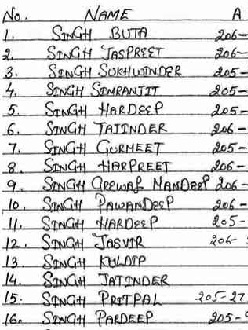 No. NAME A
1. SINGH BUTA 206-
2. SINGH JASPREET 206-
3. SINGH SUKHWINDER 205-
4. SINGH SIMRANJIT 205-
5. SINGH HARDEEP 205-
6. SINGH TAJINDER 206-
7. SINGH GURMEET 205-
8. SINGH HARPREET 206-
9. SINGH GREWAL MANDEEP 206-
10. SINGH PAWANDEEP 206-
11. SINGH HARDEEP 205-
12. SINGH JASVIR 206-
13. SINGH KULDIP
14. SINGH JATINDER
15. SINGH PRITPAL 205-27
16. SINGH PARDEEP 205-